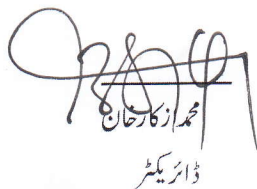 محمد ازکار خان
ڈائریکٹر